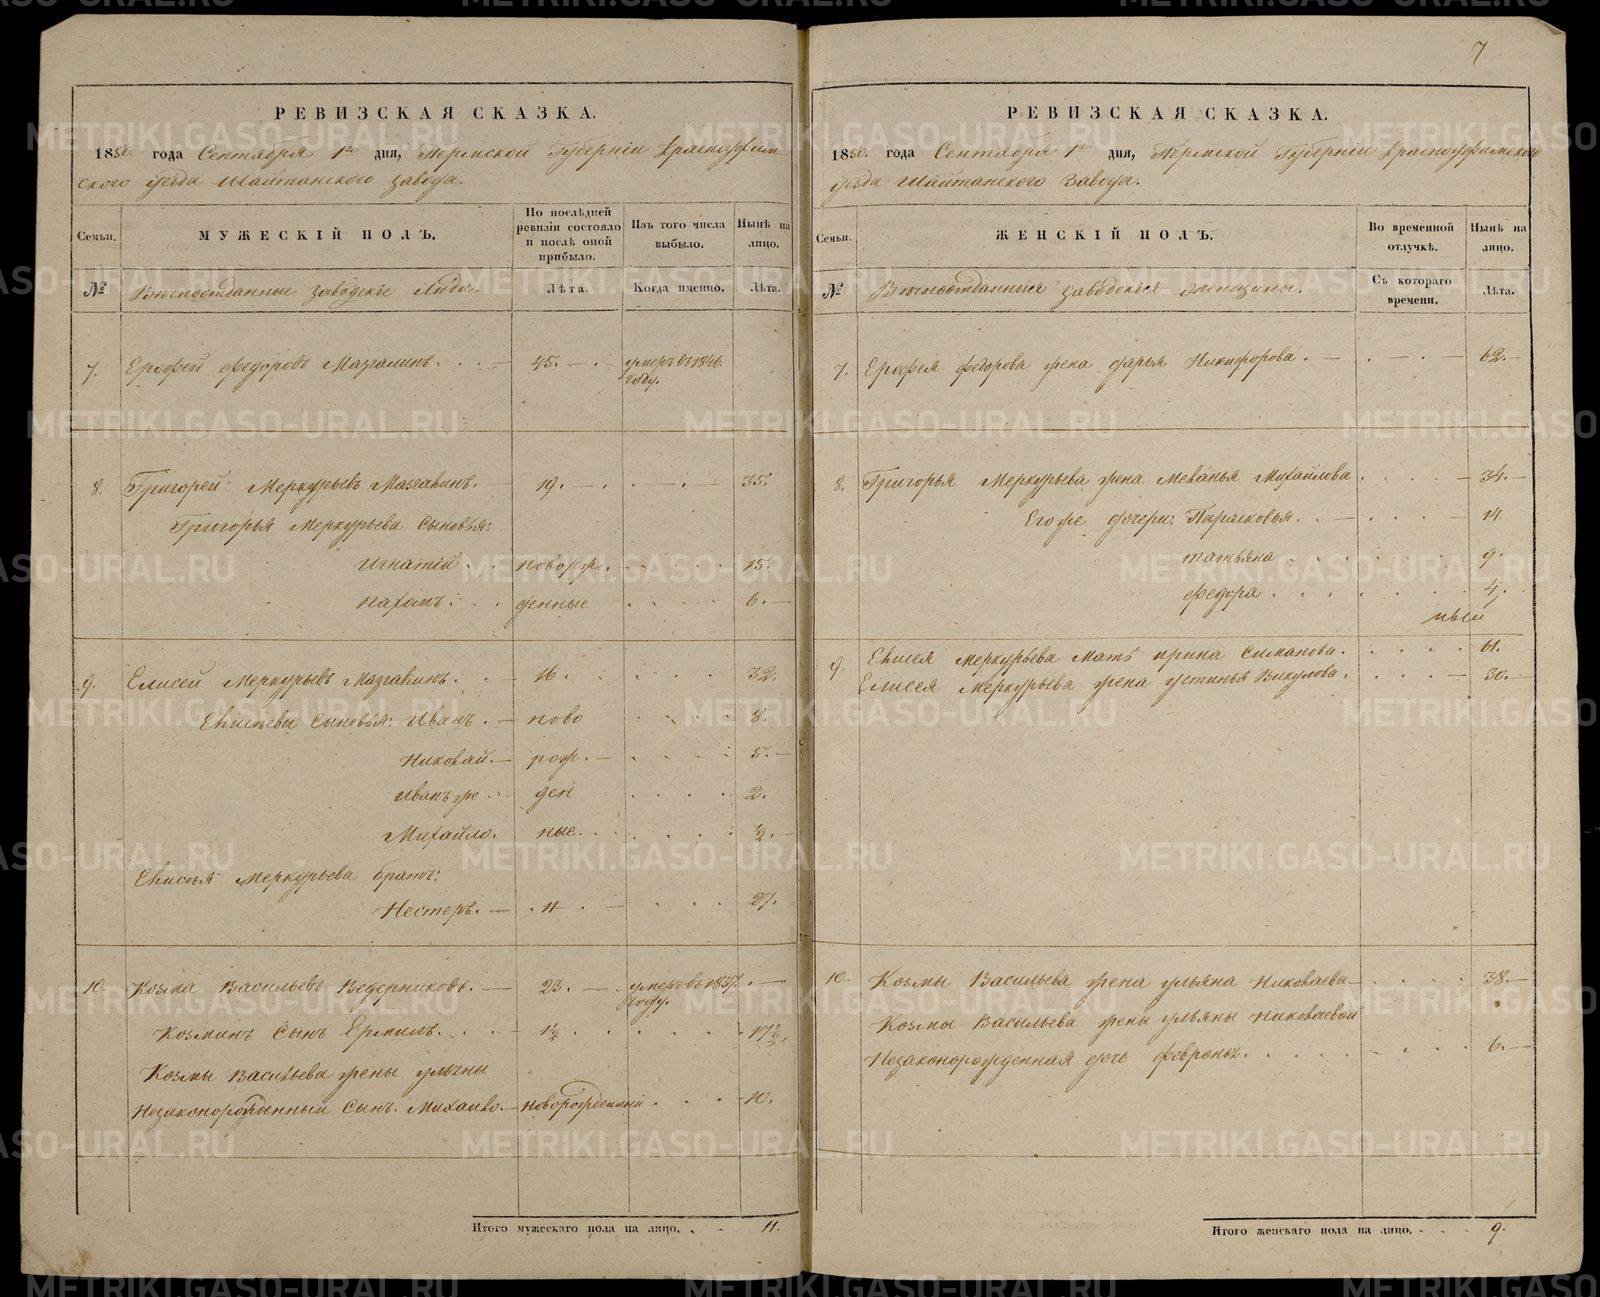 7
РЕВИЗСКАЯ СКАЗКА.
1850 года Сентября 1го дня, Пермской Губернiи Красноуфим
ского уезда Шайтанского завода.
Семьи. МУЖЕСКIЙ ПОЛЪ. По послѣдней ревизiи состояло и послѣ оной прибыло. Изъ того числа выбыло. Нынѣ на лицо.
№ Вечноотданные заводскiе Люди. Лѣта. Когда именно. Лѣта.
7. Ерофей Федоровъ Мазгалинъ. 45. умеръ въ 1846. году.
8. Григорей Меркурьевъ Мазгалинъ. 19. 35.
Григорья Меркурьева Сыновья:
Игнатiй новорж. 15.
Пахомъ: денные 6.
9. Елисей Меркурьевъ Мазгалинъ. 16. 32.
Елисеевы Сыновья: Иванъ. ново 8.
Николай. рож. 5.
Иванъ же ден 2.
Михайло. ные. ½.
Елисея Меркурьева братъ:
Нестеръ. 11. 27.
10. Козма Васильевъ Ведерниковъ. 23. умеръ въ 1837. году.
Козминъ Сынъ Ермилъ. 1½ 17½.
Козмы Васильева жены ульяны
Незаконорожденный Сынъ. Михайло. новорожденный 10.
Итого мужескаго пола на лицо. 11.
РЕВИЗСКАЯ СКАЗКА.
1850. года Сентября 1го дня, Пермской Губернiи Красноуфимского
уезда Шайтанского Завода.
Семьи. ЖЕНСКIЙ ПОЛЪ. Во временной отлучкѣ. Нынѣ на лицо.
№ Вечноотданныя заводскiя женщины. Съ котораго времени. Лѣта.
7. Ерофея Федорова жена дарья Никифорова. 62.
8. Григорья Меркурьева жена Меланья Михайлова 34.
Его же дочери: Парасковья. 14.
татьяна 9.
Федора 4.
9. Елисея Меркурьева Мать ирина Симанова. 61.
Елисея Меркурьева жена устинья Викулова. 30.
10. Козмы Васильева жена ульяна Николаева 38.
Козмы Васильева жены ульяны николаевой
Незаконорожденная дочь февронья. 6.
Итого женскаго пола на лицо. 9.
METRIKI.GASO-URAL.RU